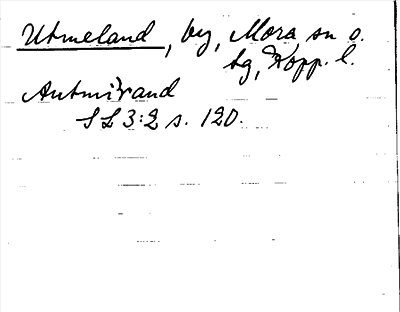 Utmeland, by, Mora sn o.
tg, Kopp. l.
Autmirand
SL 3:2 s. 120.